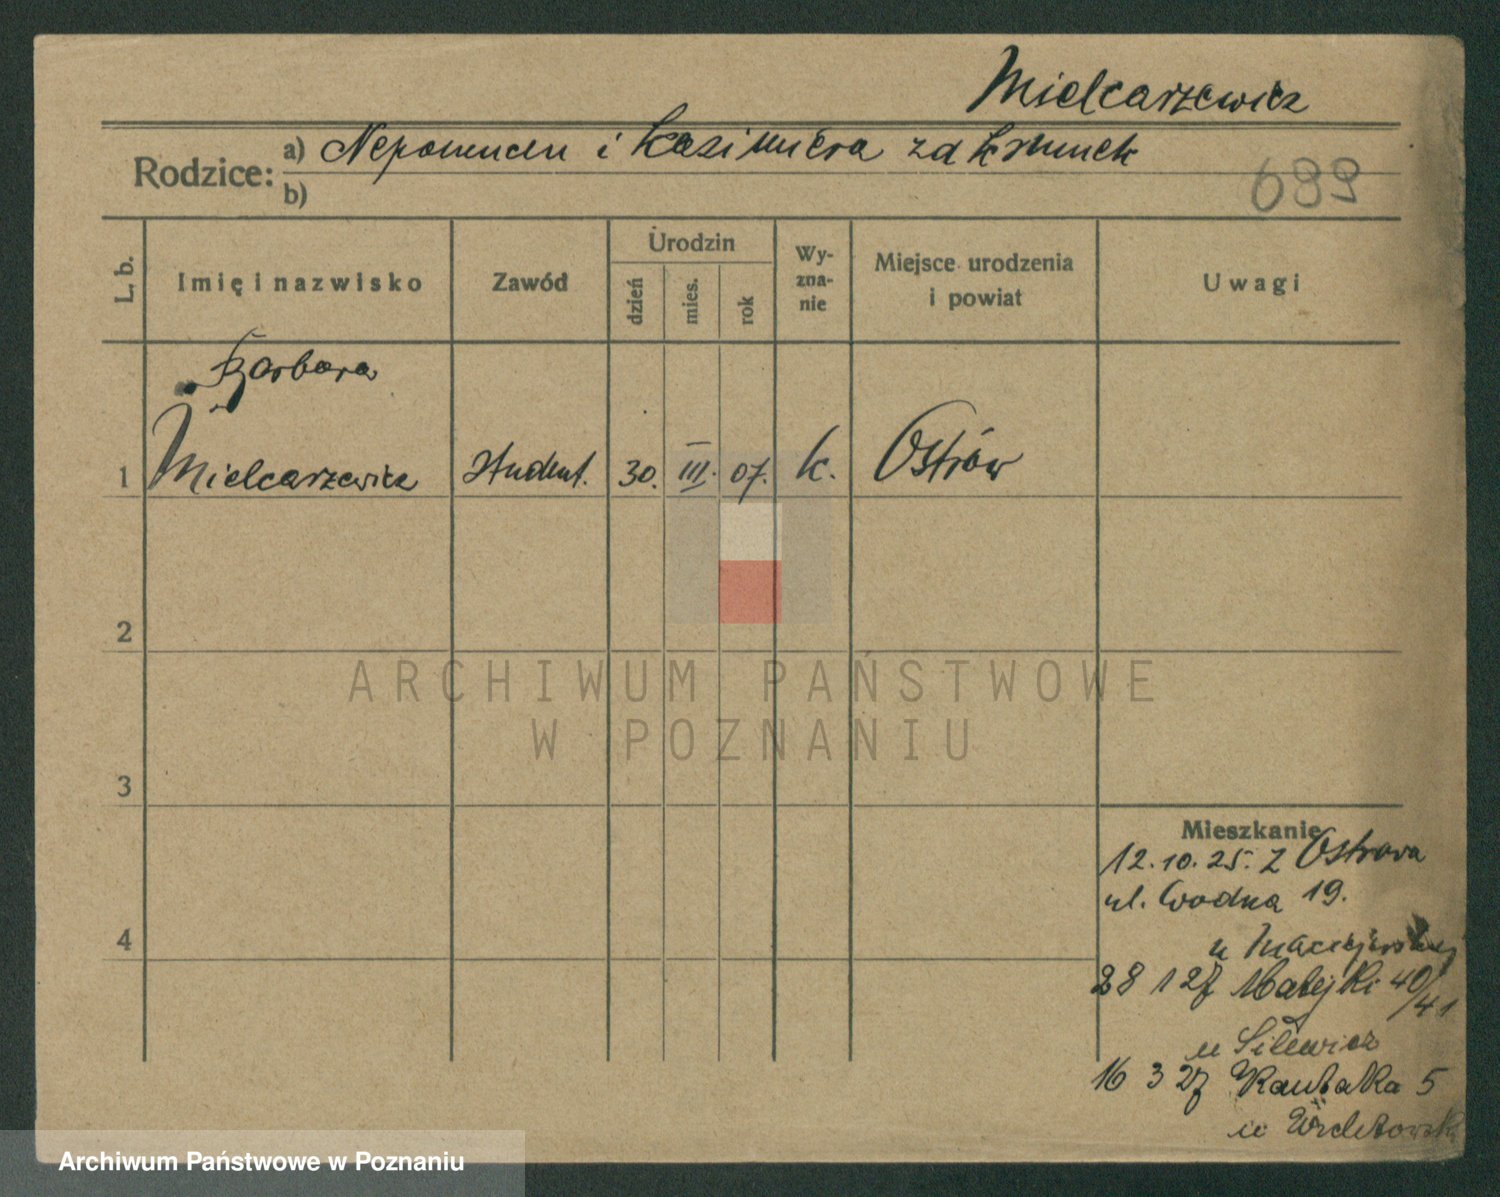 Mielcarzewicz
Rodzice: a) Nepomucen i Kazimiera zd
b)
689
L. b. Imię i nazwisko Zawód Urodzin dzień mies. rok Wy-zna-nie Miejsce urodzenia i powiat Uwagi
Barbara
1 Mielcarzewicz student. 30. III. 07. k. Ostrów
2
ARCHIWUM PAŃSTWOWE
W POZNANIU
3
Mieszkanie
12.10.25. Z Ostrowa
ul. Wodna 19.
4
u Maciejewskiej
28 1 27 Matejki 40/41
u Silewicz
16 3 27 Kantaka 5
u
Archiwum Państwowe w Poznaniu